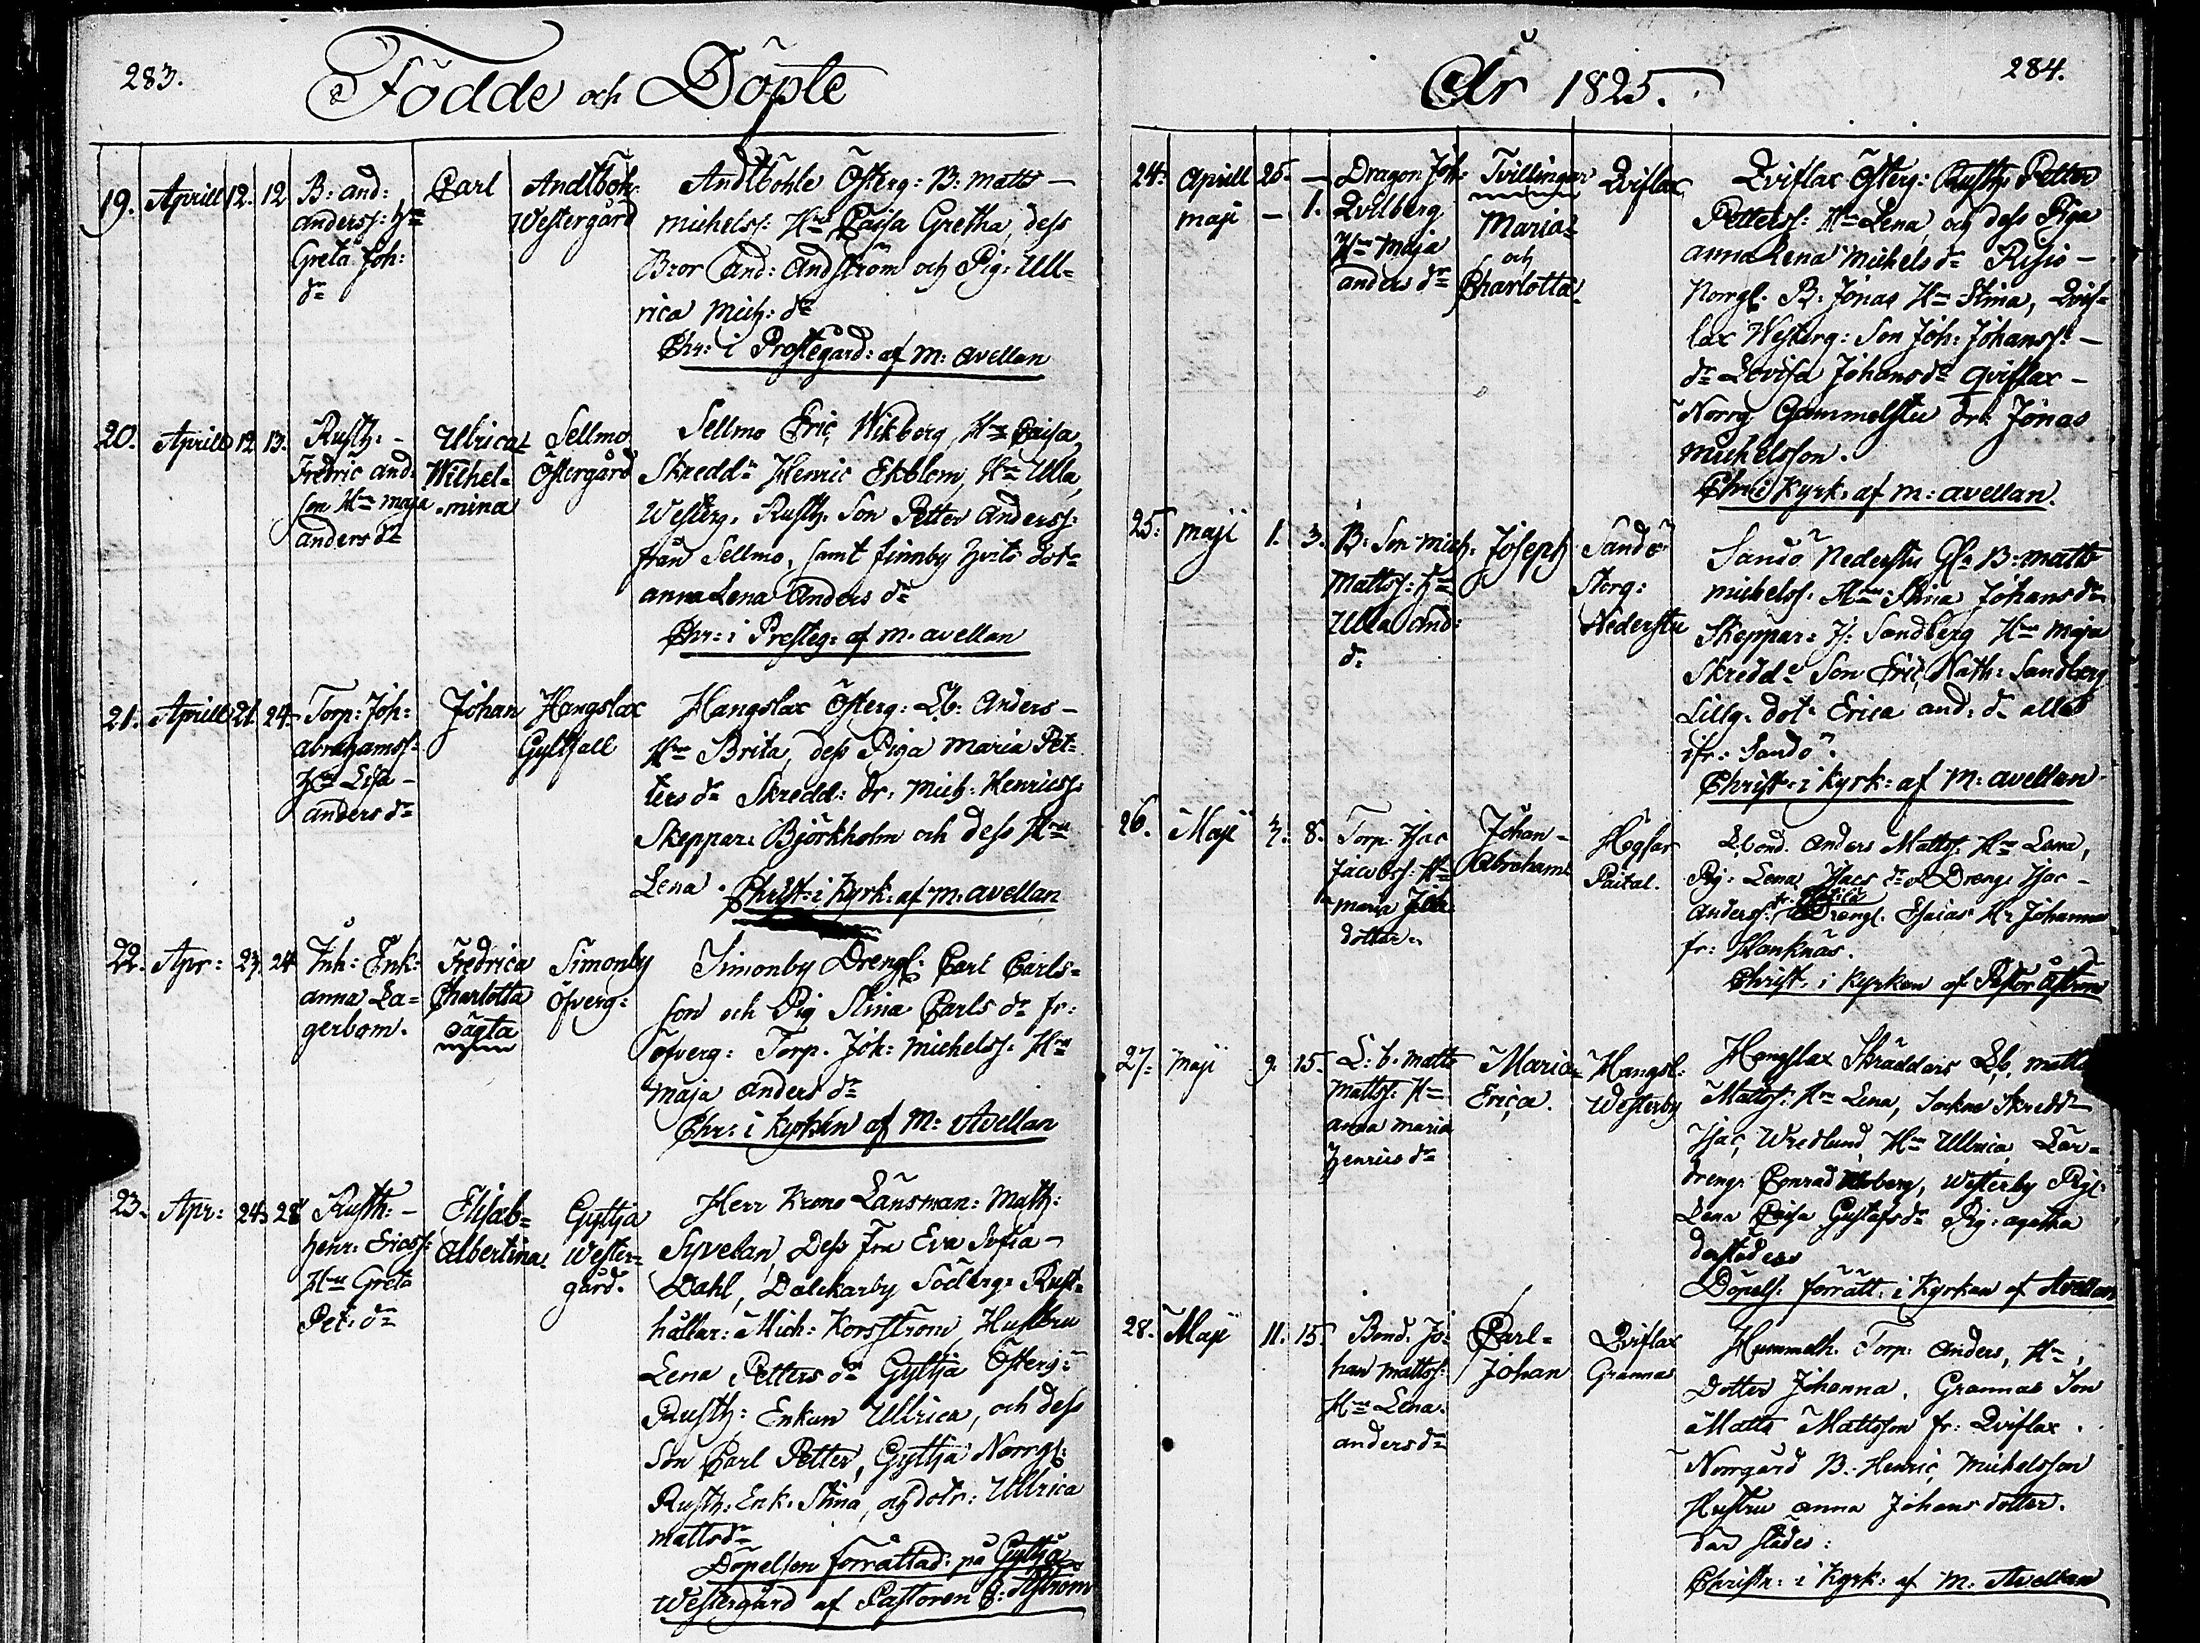 283.
Födde och Döpte
19. Aprill 12. 12 B: and: anderss: Hu Greta Joh: dr
Carl
Andtböhl: Westergård
Andtböhle Österg: B: Matts
michelss: Hu Caisa Gretha, dess
Bror And: Andström och Pig: Ull-
rica Mich: dr
Chr: i Prostegård: af M: Avellan
20. Aprill 12. 13. Rusth: Fredric Andson Hu Maja anders dr
Ulrica Wilhelmina
Sellmo Östergård
Sellmo Eric Wikberg, Hu Caisa,
Skreddr Henric Ekblom, Hu Ulla,
Westerg. Rusth. Son Petter Anderss:
från Sellmo, samt finnby dot-
anna Lena Anders dr
Chr: i Presteg: af M. avellan
21. Aprill 21. 24. Torp: Joh: abrahamss: Hu Lisa anders dr
Johan
Hangslax Gyltfall
Hangslax Österg: Lb: Anders
Hu Brita, dess Piga Maria Pet-
ters dr Skredd: dr. Mich: Henricss:
Skeppar: Björkholm och dess Hu
Lena. Christ: i Kyrk: af M: avellan
22. Apr: 23. 24 Inh: Enk: anna Lagerbom.
Fredrica Charlotta oägta
Simonby Öfverg:
Simonby Drengl: Carl Carls-
son och Pig Stina Carls dr fr:
Öfverg: Torp. Joh: michelss. Hu
Maja anders dr
Chr: i Kyrkan af M: Avellan
23. Apr: 24. 28 Rusth: Henr: Ericss: Hu Greta Pet: dr
Elisab- Albertina.
Gyltja Westergård.
Herr Krono Länsman: Math:
Syvelan, Dess Fru Eva Sofia
Dahl, Dalckarby Söderg: Rust-
hållar: Mich: Korsström, Hustru
Lena Petters dr Gyltja Österg:
Rusth: Enkan Ullrica, och dess
Son Carl Petter, Gyltja Norrg:
Rusth: Enk. Stina, och dotr: Ullrica
Matts dr
Döpelsen förrättad: på Gyltja
Westergård af Pastoren Åström
284.
År 1825.
24. Aprill 25. —
maji — 1.
Dragon Joh: Qvilberg Hu Maja anders dr
Tvillingar Maria och Charlotta
Qviflax
Qviflax Österg: Rusth. Petter
Petterss: Hu Lena, och dess Piga
anna Lena Michels dr Risis
Norrgl. B. Jonas Hu Stina, Qvif-
lax Westerg: Son Joh: Johanss:
dr Lovisa Johans dr Qviflax
Norrg Gammelstu Jonas
Michelsson.
Chr: i Kyrk. af M: avellan.
25. maji 1. 3. B: Son Mich. Mattss: Hu Ulla And: dr
Joseph
Sandö Storg: Nederstu
Sandö Nederstu B: Matts
michelss. Hu Stina Johans dr
Skeppar: J: Sandberg Hu Maja
Skredd: Son Eric Nath: Sandberg
Lillg. dot: Erica and: dr alla
ifr: Sandö.
Christ: i Kyrk: af M: avellan
26. Maji 7. 8. Torp. Isac Jacobss: Hu Maria dotter
Johan Abraham
Högsar Paital.
Lbond. Anders Mattss. Hu Lena,
Pig: Lena Isacs dr Dreng: Isac
Anderss: Drengl. Esaias Hr Johannes
fr: Hanknäs.
Christ. i Kyrkan af Pastor Åström
27. maji 9. 15. L: b. matts Mattss: Hu anna maria Henrics dr
Maria Erica.
Hangsl: Westerby
Hangslax Skräddars Lb. matts
Mattss: Hu Lena, Sockne Skreddr
Isac Wredlund, Hu Ullrica, Lär-
dreng: Conrad Westerby Pig:
Lena Caisa Gustafs dr Pig: agatha
derstädes
Döpels. förrätt. i Kyrkan af Avellan
28. Maji 11. 15. Bond. Johan Mattss: Hu Lena anders dr
Carl Johan
Qviflax Grannas
Hummelh. Torp. Anders, Hu,
Dotter Johanna, Grannas Son
Matts Mattsson fr: Qviflax
Norrgård B. Henric Michelsson
Hustru anna Johansdotter.
där städes:
Christn: i Kyrk: af M. Avellan